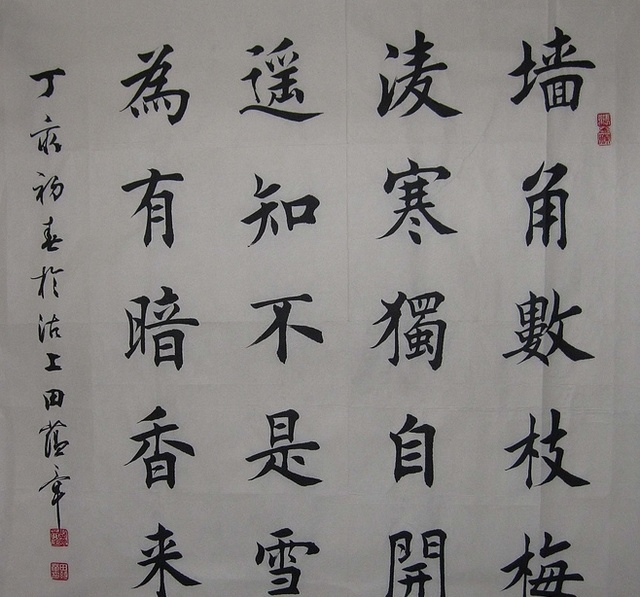 墙角數枝梅
淩寒獨自開
遥知不是雪
為有暗香来
丁亥初春於沽上田蕴章